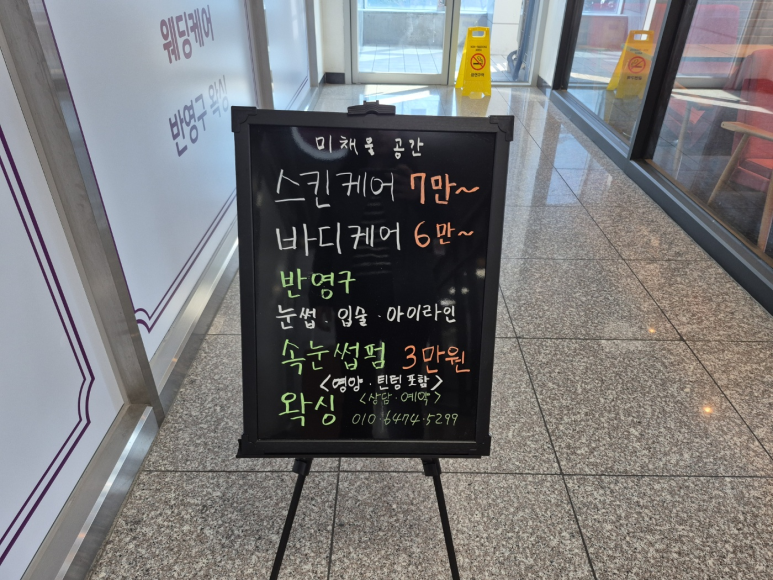 웨딩케어
반영구 왁싱
미채움 공간
스킨케어 7만~
바디케어 6만~
반영구
눈썹 · 입술 · 아이라인
속눈썹펌 3만원
<영양 · 틴팅 포함>
왁싱 <상담 · 예약>
010·6474·5299